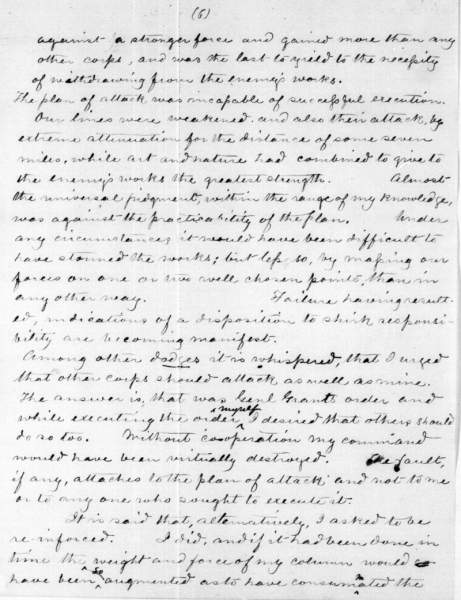 (5)
against a stronger force and gained more than any
other corps, and was the last to yield to the necessity
of withdrawing from the enemy's works.
The plan of attack was incapable of successful execution.
Our lines were weakened, and also their attack, by
extreme attenuation for the distance of some seven
miles, while art and nature had combined to give to
the enemy's works the greatest strength. Almost
the universal judgment, within the range of my knowledge,
was against the practicability of the plan. Under
any circumstances it would have been difficult to
have stormed the works; but less so, by massing our
forces on one or two well chosen points, than in
any other way. Failure having result-
ed, indications of a disposition to shirk responsi-
bility are becoming manifest.
Among other dodges it is whispered, that I urged
that other corps should attack as well as mine.
The answer is, that was Genl Grant's order and
while executing the order myself I desired that others should
do so too. Without cooperation my command
would have been virtually destroyed. fault,
if any, attaches to the plan of attack and not to me
or to any one who sought to execute it.
It is said that, alternatively, I asked to be
re-inforced. I did, and if it had been done in
time the weight and force of my column would
have been so augmented as to have consummated the